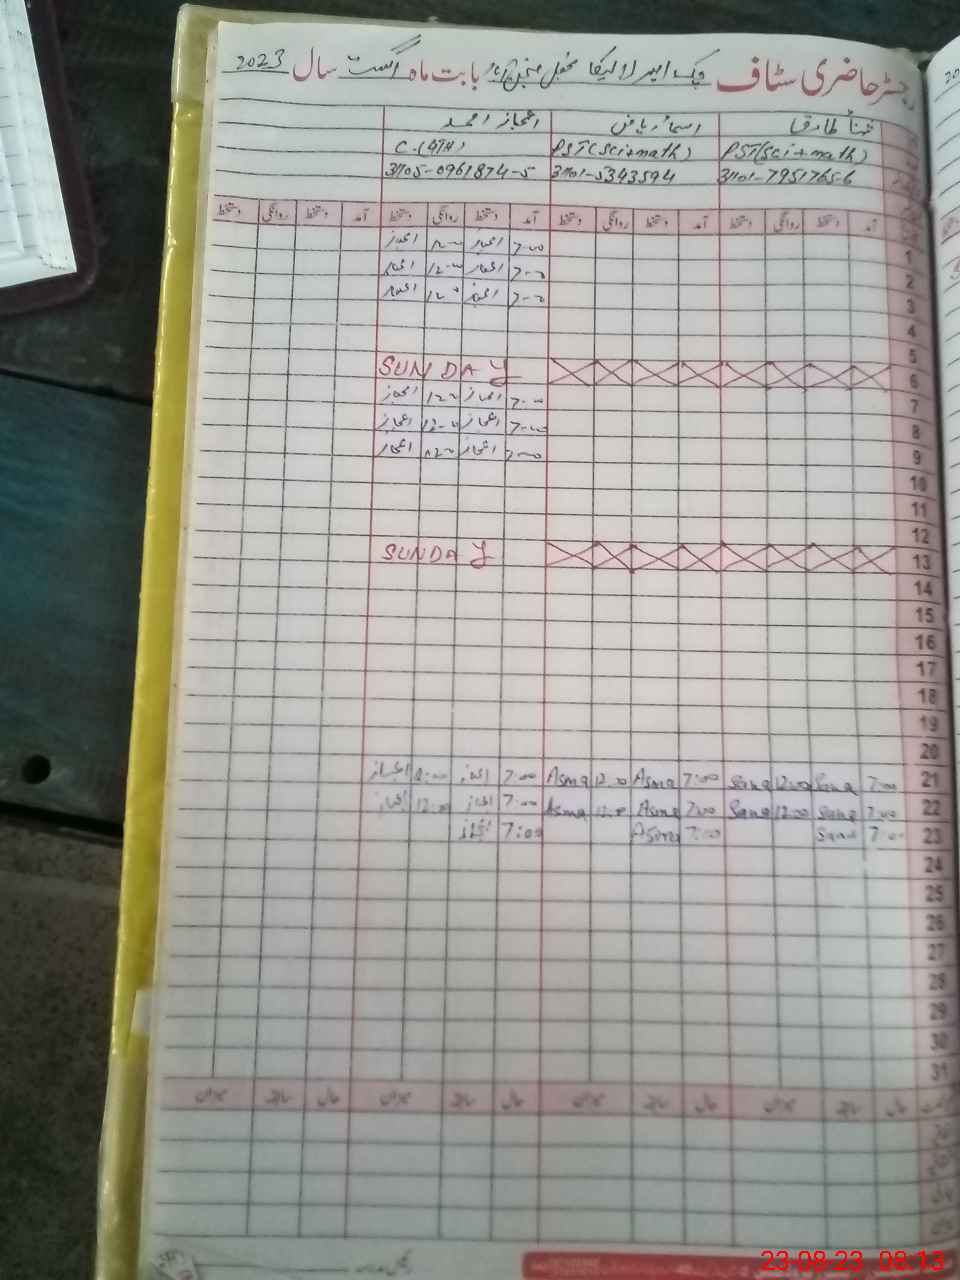 رجسٹر حاضری سٹاف چک امیر لالیکا بابت ماہ اگست سال 2023
ثنا طارق اسماء ریاض اعجاز احمد
PST(Sci+math) PST(Sci+math) C.(4TH)
31101-7951765-6 31101-5343594 31105-0961874-5
آمد دستخط روانگی دستخط آمد دستخط روانگی دستخط آمد دستخط روانگی دستخط آمد دستخط روانگی دستخط
1 7-00 اعجاز 12-00 اعجاز
2 7-00 اعجاز 12-00 اعجاز
3 7-00 اعجاز 12-00 اعجاز
4
5
6 SUNDAY
7 7-00 اعجاز 12-00 اعجاز
8 7-00 اعجاز 12-00 اعجاز
9 7-00 اعجاز 12-00 اعجاز
10
11
12
13 SUNDAY
14
15
16
17
18
19
20
21 7:00 Sana 12:00 Sana 7:00 Asma 12:00 Asma 7:00 اعجاز 12:00 اعجاز
22 7:00 Sana 12:00 Sana 7:00 Asma 12:00 Asma 7:00 اعجاز 12:00 اعجاز
23 7:00 Sana 7:00 Asma 7:00 اعجاز
24
25
26
27
28
29
30
31
حال سابقہ میزان حال سابقہ میزان حال سابقہ میزان حال سابقہ میزان
23-08-23 08:13